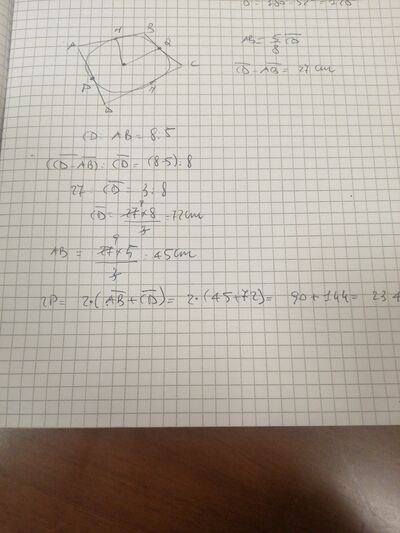 M B
A Q
C
P
N
D
AB = 5/8 CD
CD - AB = 27 cm
CD : AB = 8 : 5
(CD - AB) : CD = (8-5) : 8
27 : CD = 3 : 8
CD = 27 × 8 / 3 = 72 cm
9
AB = 27 × 5 / 3 = 45 cm
2P = 2·(AB + CD) = 2·(45+72) = 90 + 144 = 234